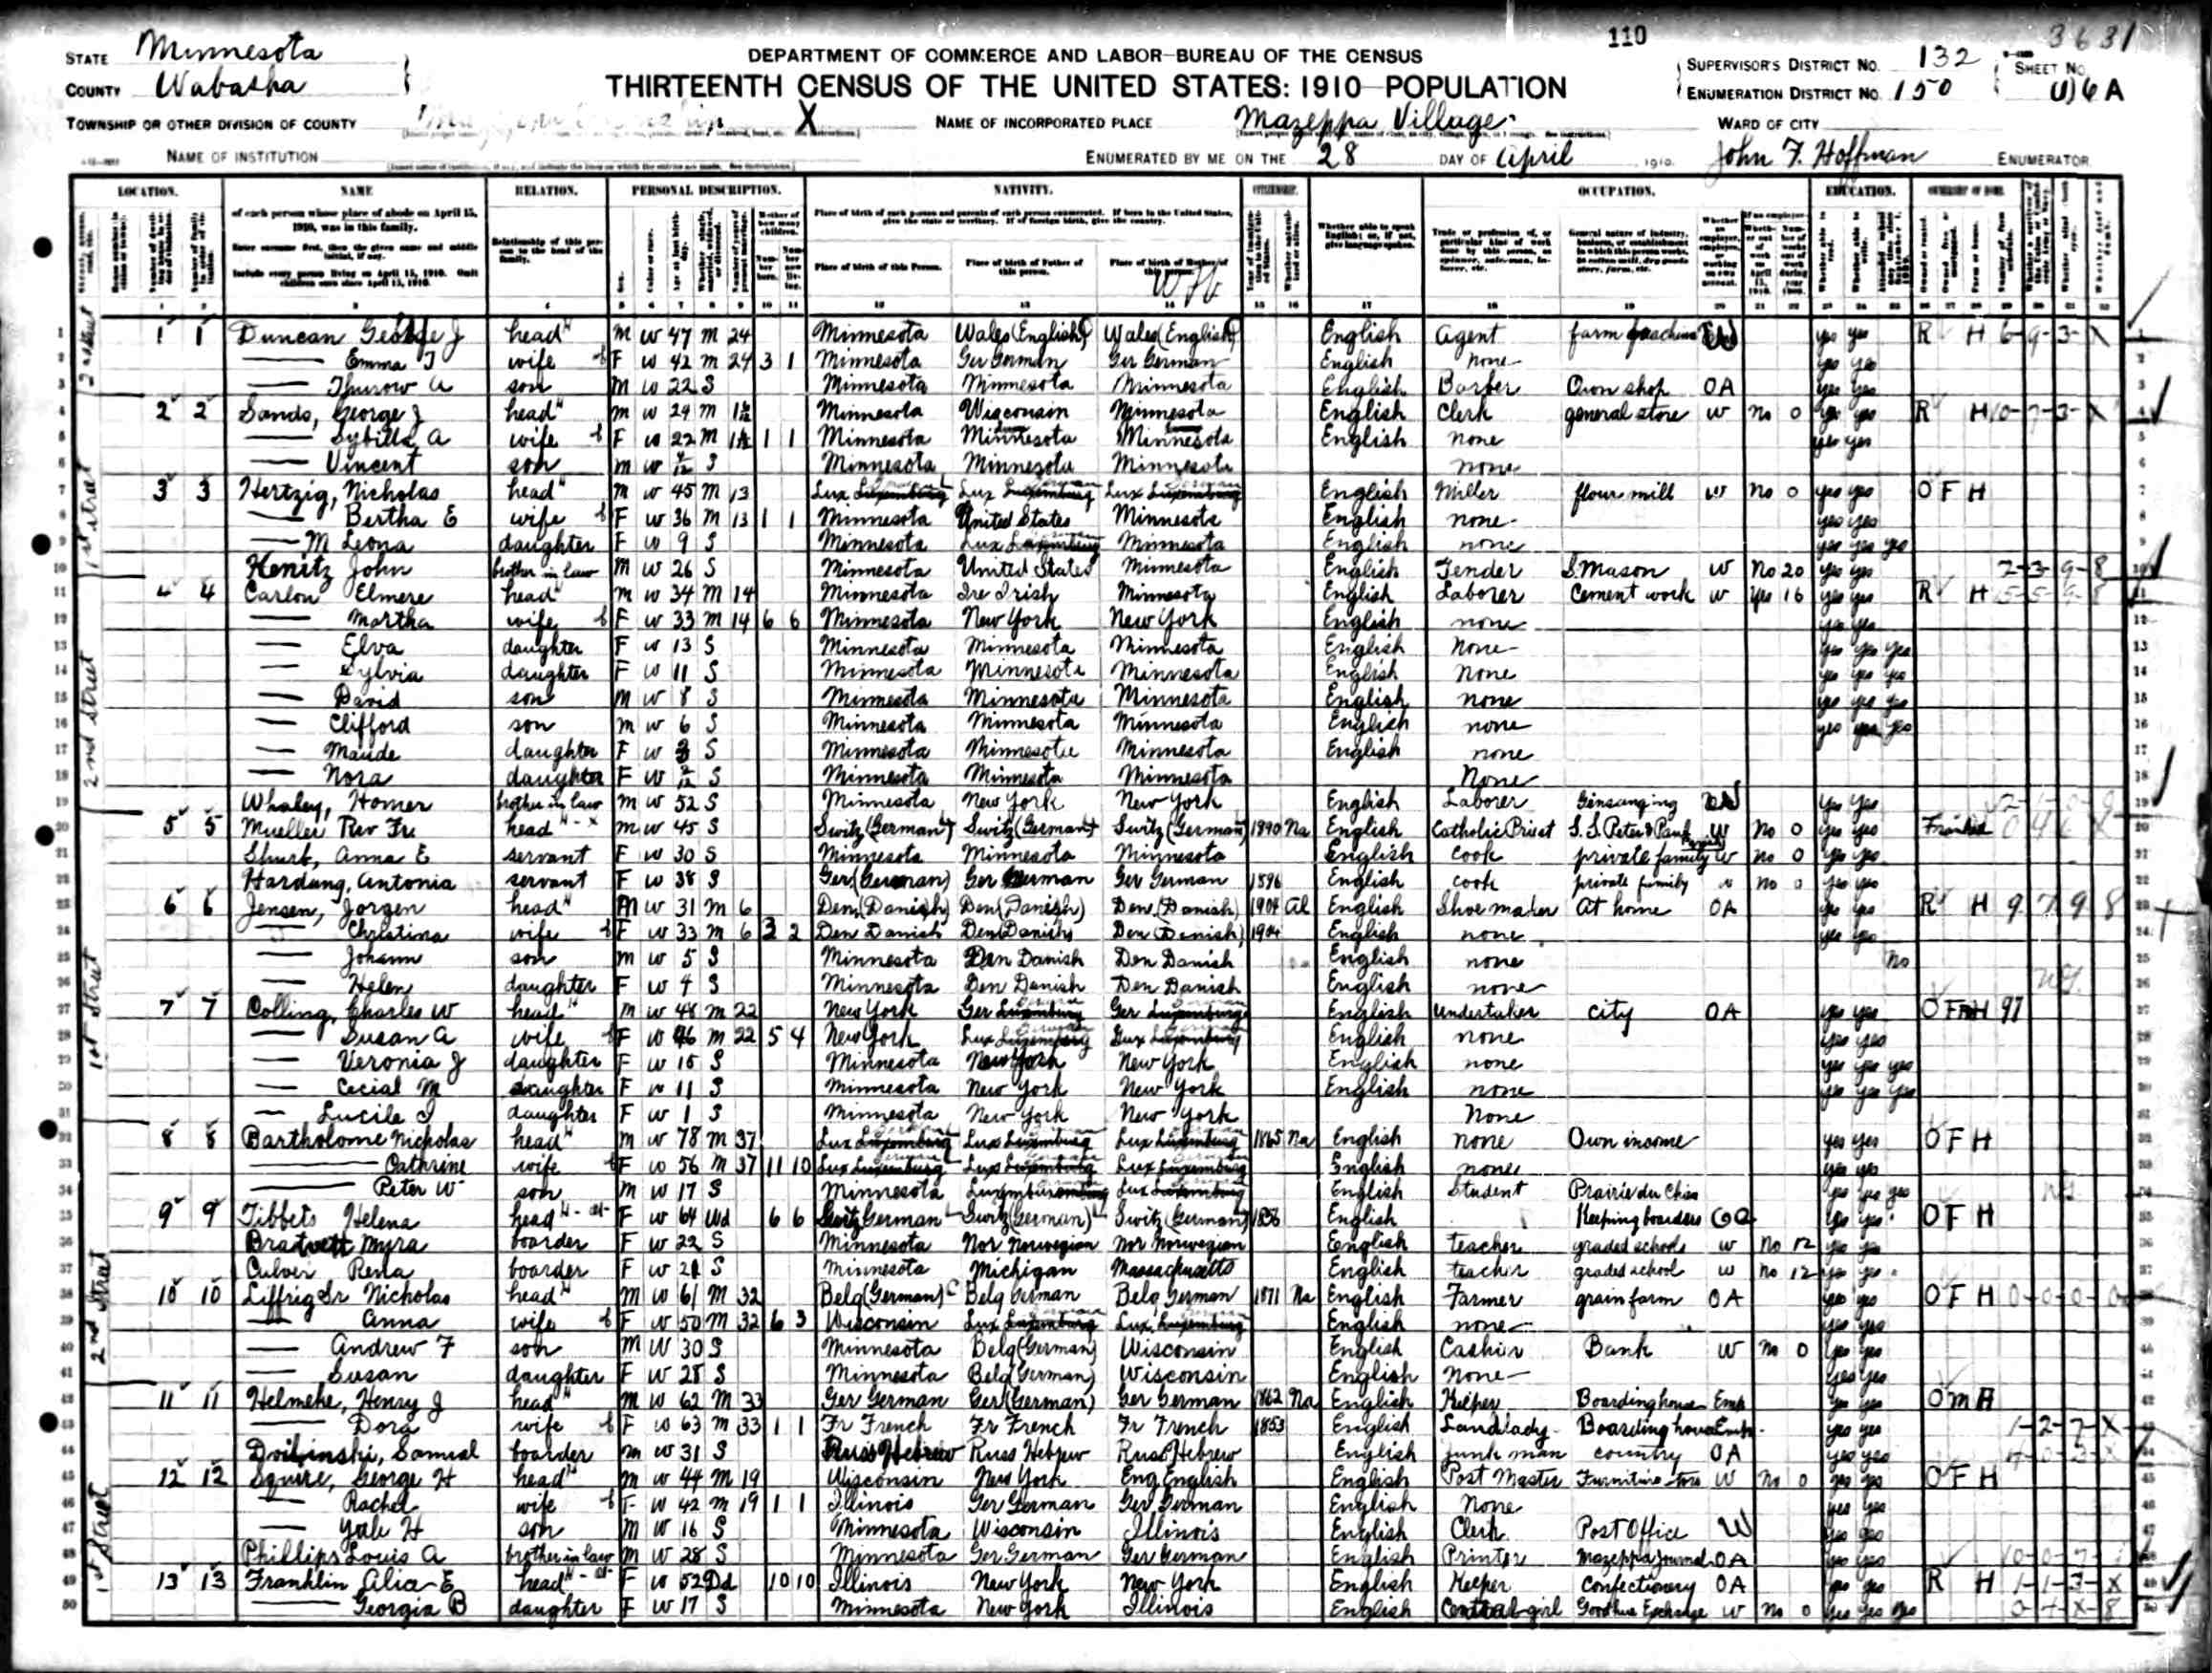 110
3631
STATE Minnesota
COUNTY Wabasha
TOWNSHIP OR OTHER DIVISION OF COUNTY X
NAME OF INSTITUTION
DEPARTMENT OF COMMERCE AND LABOR—BUREAU OF THE CENSUS
THIRTEENTH CENSUS OF THE UNITED STATES: 1910—POPULATION
NAME OF INCORPORATED PLACE Mazeppa Village
ENUMERATED BY ME ON THE 28 DAY OF April 1910. John F. Hoffman ENUMERATOR
SUPERVISOR'S DISTRICT No. 132
ENUMERATION DISTRICT No. 150
SHEET No. 6 A
WARD OF CITY
LOCATION. NAME RELATION. PERSONAL DESCRIPTION. NATIVITY. CITIZENSHIP. OCCUPATION. EDUCATION. OWNERSHIP OF HOME.
of each person whose place of abode on April 15, 1910, was in this family.
Enter surname first, then the given name and middle initial, if any.
Include every person living on April 15, 1910. Omit children born since April 15, 1910.
Relationship of this person to the head of the family.
Place of birth of each person and parents of each person enumerated. If born in the United States, give the state or territory. If of foreign birth, give the country.
Place of birth of this Person. Place of birth of Father of this person. Place of birth of Mother of this person.
Whether able to speak English; or, if not, give language spoken.
1 1 Duncan George J head M W 47 M 24 Minnesota Wales (English) Wales (English) English Agent farm W yes yes R H 6-9-3-X
Emma T wife F W 42 M 24 3 1 Minnesota Ger German Ger German English none yes yes
Thurow A son M W 22 S Minnesota Minnesota Minnesota English Barber Own shop OA yes yes
2 2 Sands, George J head M W 24 M Minnesota Wisconsin Minnesota English Clerk general store W no 0 yes yes R H 10-7-3-X
Sybilla A wife F W 22 M 1 1 Minnesota Minnesota Minnesota English none yes yes
Vincent son M W S Minnesota Minnesota Minnesota none
3 3 Hertzig, Nicholas head M W 45 M 13 Lux Luxemburg Lux Luxemburg Lux Luxemburg English Miller flour mill W no 0 yes yes O F H
Bertha E wife F W 36 M 13 1 1 Minnesota United States Minnesota English none yes yes
M Leona daughter F W 9 S Minnesota Lux Luxemburg Minnesota English none yes yes yes
Henitz John brother in law M W 26 S Minnesota United States Minnesota English Tender S. Mason W No 20 yes yes 2-3-9-8
4 4 Carlon Elmere head M W 34 M 14 Minnesota Ire Irish Minnesota English Laborer Cement work W yes 16 yes yes R H
Martha wife F W 33 M 14 6 6 Minnesota New York New York English none yes yes
Elva daughter F W 13 S Minnesota Minnesota Minnesota English None yes yes yes
Sylvia daughter F W 11 S Minnesota Minnesota Minnesota English None yes yes yes
David son M W 8 S Minnesota Minnesota Minnesota English none yes yes yes
Clifford son M W 6 S Minnesota Minnesota Minnesota English none yes yes yes
Maude daughter F W S Minnesota Minnesota Minnesota English none
Nora daughter F W S Minnesota Minnesota Minnesota None
Whaley, Homer brother in law M W 52 S Minnesota New York New York English Laborer Ginsenging yes yes
5 5 Mueller Rev Fr. head M W 45 S Switz (German) Switz (German) Switz (German) 1890 Na English Catholic Priest S. S. Peter & Paul W no 0 yes yes
Shurb, Anna E servant F W 30 S Minnesota Minnesota Minnesota English cook private family W no 0 yes yes
Hardung, Antonia servant F W 38 S Ger (German) Ger German Ger German 1896 English cook private family no 0 yes yes
6 6 Jensen, Jorgen head M W 31 M 6 Den (Danish) Den (Danish) Den (Danish) 1904 Al English Shoe maker At home OA yes yes R H 9 7 9 8
Christina wife F W 33 M 6 3 2 Den Danish Den Danish Den (Danish) 1904 English none yes yes
Johann son M W 5 S Minnesota Den Danish Den Danish English none no
Helen daughter F W 4 S Minnesota Den Danish Den Danish English none
7 7 Colling, Charles W head M W 48 M 22 New York Ger Luxemburg Ger Luxemburg English Undertaker city OA yes yes O F H 97
Susan A wife F W 46 M 22 5 4 New York Lux Luxemburg Lux Luxemburg English none yes yes
Veronia J daughter F W 15 S Minnesota New York New York English none yes yes yes
Cecial M daughter F W 11 S Minnesota New York New York English none yes yes yes
Lucile I daughter F W 1 S Minnesota New York New York None
8 8 Bartholome Nicholas head M W 78 M 37 Lux Luxemburg Lux Luxemburg Lux Luxemburg 1865 Na English none Own income yes yes O F H
Cathrine wife F W 56 M 37 11 10 Lux Luxemburg Lux Luxemburg Lux Luxemburg English none yes yes
Peter W son M W 17 S Minnesota Luxemburg Lux Luxemburg English Student Prairie du Chien yes yes yes
9 9 Tibbets Helena head F W 64 Wd 6 6 Switz German Switz (German) Switz (German) 1856 English Keeping boarders OA yes yes O F H
Bratvett Myra boarder F W 22 S Minnesota Nor Norwegian Nor Norwegian English teacher graded schools W no 12 yes yes
Culver Rena boarder F W 21 S Minnesota Michigan Massachusetts English teacher graded school W no 12 yes yes
10 10 Liffrig Sr Nicholas head M W 61 M 32 Belg (German) Belg German Belg German 1871 Na English Farmer grain farm OA yes yes O F H 0-0-0-0
Anna wife F W 50 M 32 6 3 Wisconsin Lux Luxemburg Lux Luxemburg English none yes yes
Andrew F son M W 30 S Minnesota Belg (German) Wisconsin English Cashier Bank W no 0 yes yes
Susan daughter F W 28 S Minnesota Belg (German) Wisconsin English None yes yes
11 11 Helmeke, Henry J head M W 62 M 33 Ger German Ger (German) Ger German 1862 Na English Keeper Boardinghouse Emp yes yes O M H
Dora wife F W 63 M 33 1 1 Fr French Fr French Fr French 1853 English Landlady Boarding house Emp yes yes 1-2-7-X
Samuel boarder M W 31 S Russ Hebrew Russ Hebrew Russ Hebrew English junk man country OA yes yes
12 12 Squire, George H head M W 44 M 19 Wisconsin New York Eng English English Post Master Furniture store W no 0 yes yes O F H
Rachel wife F W 42 M 19 1 1 Illinois Ger German Ger German English None yes yes
Yale H son M W 16 S Minnesota Wisconsin Illinois English Clerk Post Office W yes yes
Phillips Louis A brother in law M W 28 S Minnesota Ger German Ger German English Printer Mazeppa Journal OA yes yes
13 13 Franklin Alice E head F W 52 Dd 10 10 Illinois New York New York English Keeper Confectionery OA yes yes R H 1-1-3-X
Georgia B daughter F W 17 S Minnesota New York Illinois English Central girl Goodhue Exchange W no 0 yes yes yes
1st Street
2nd Street
1st Street
2nd Street
1st Street